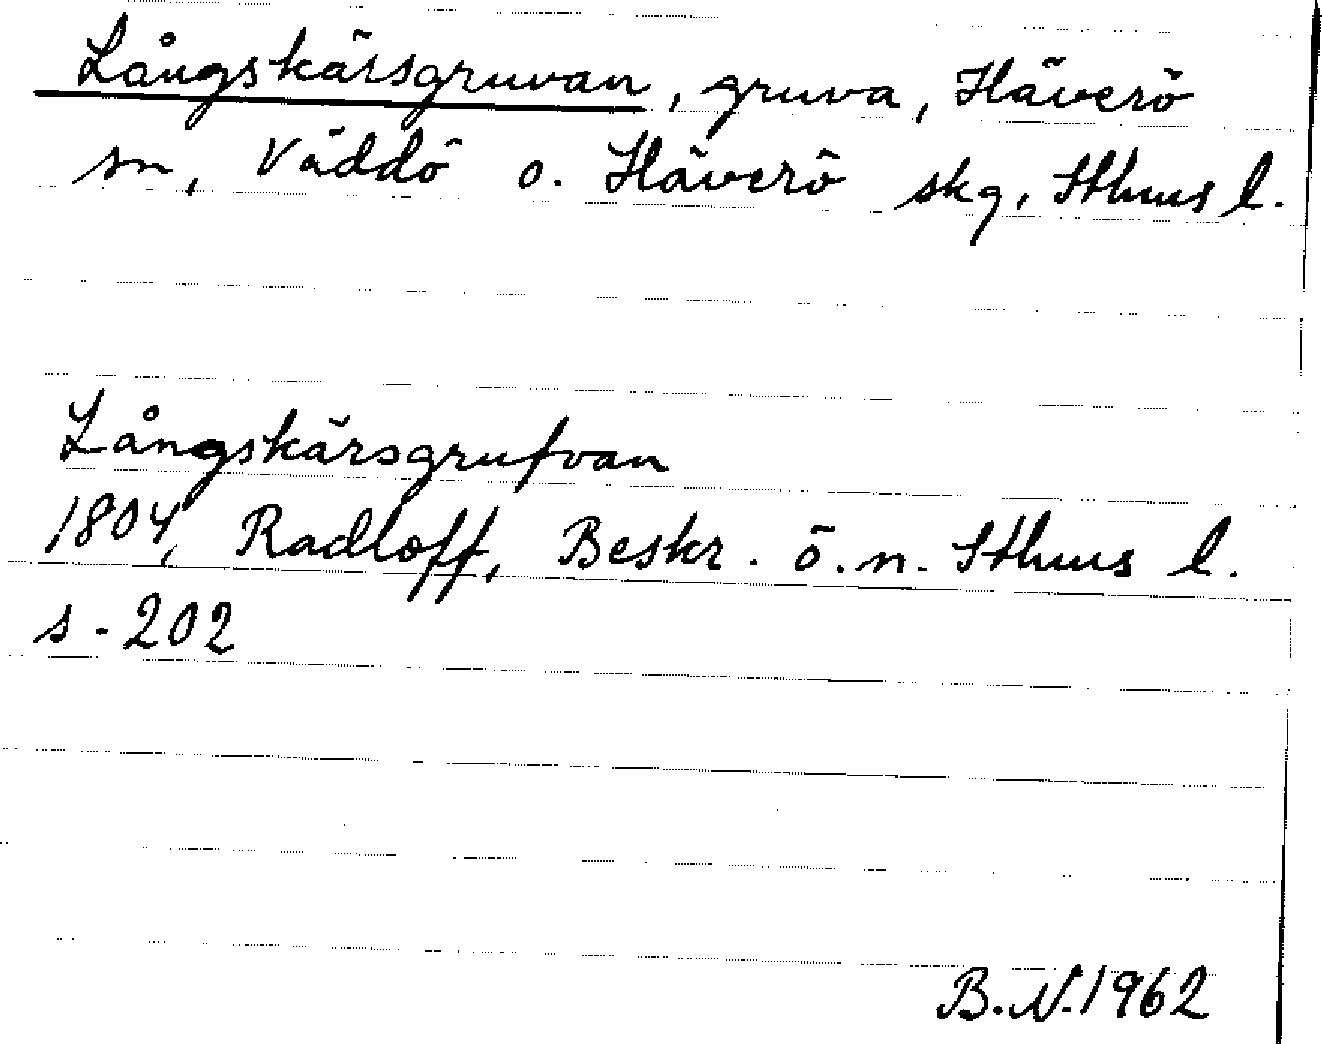 Långskärsgruvan, gruva, Häverö
sn, Väddö o. Häverö skg, Sthms l.
Långskärsgrufvan
1804, Radloff, Beskr. ö. n. Sthms l.
s. 202
B.N. 1962